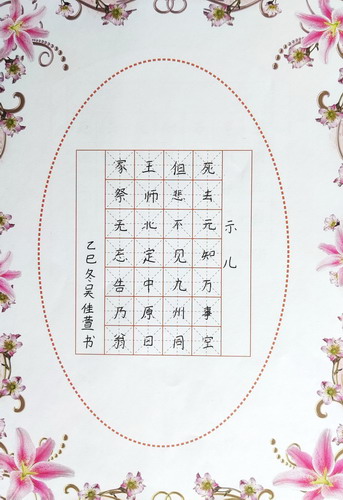 示儿
死去元知万事空
但悲不见九州同
王师北定中原日
家祭无忘告乃翁
乙巳冬吴佳萱书